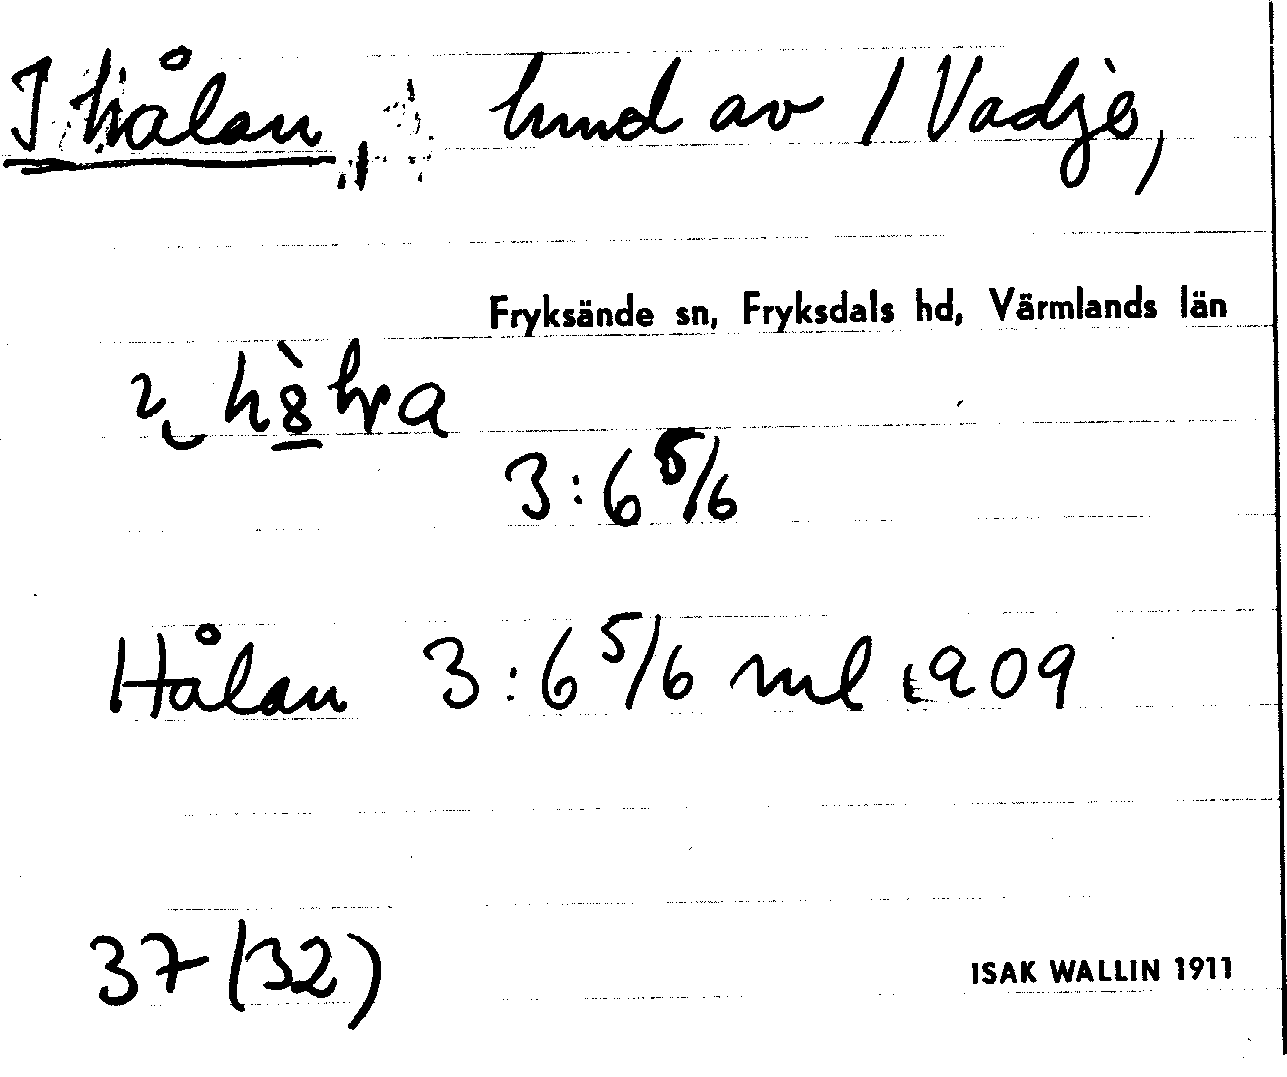 I hålan, hmd av 1 Vadje,
Fryksände sn, Fryksdals hd, Värmlands län
3:6 5/6
Hålan 3:6 5/6 ml 1909
37 (32)
ISAK WALLIN 1911